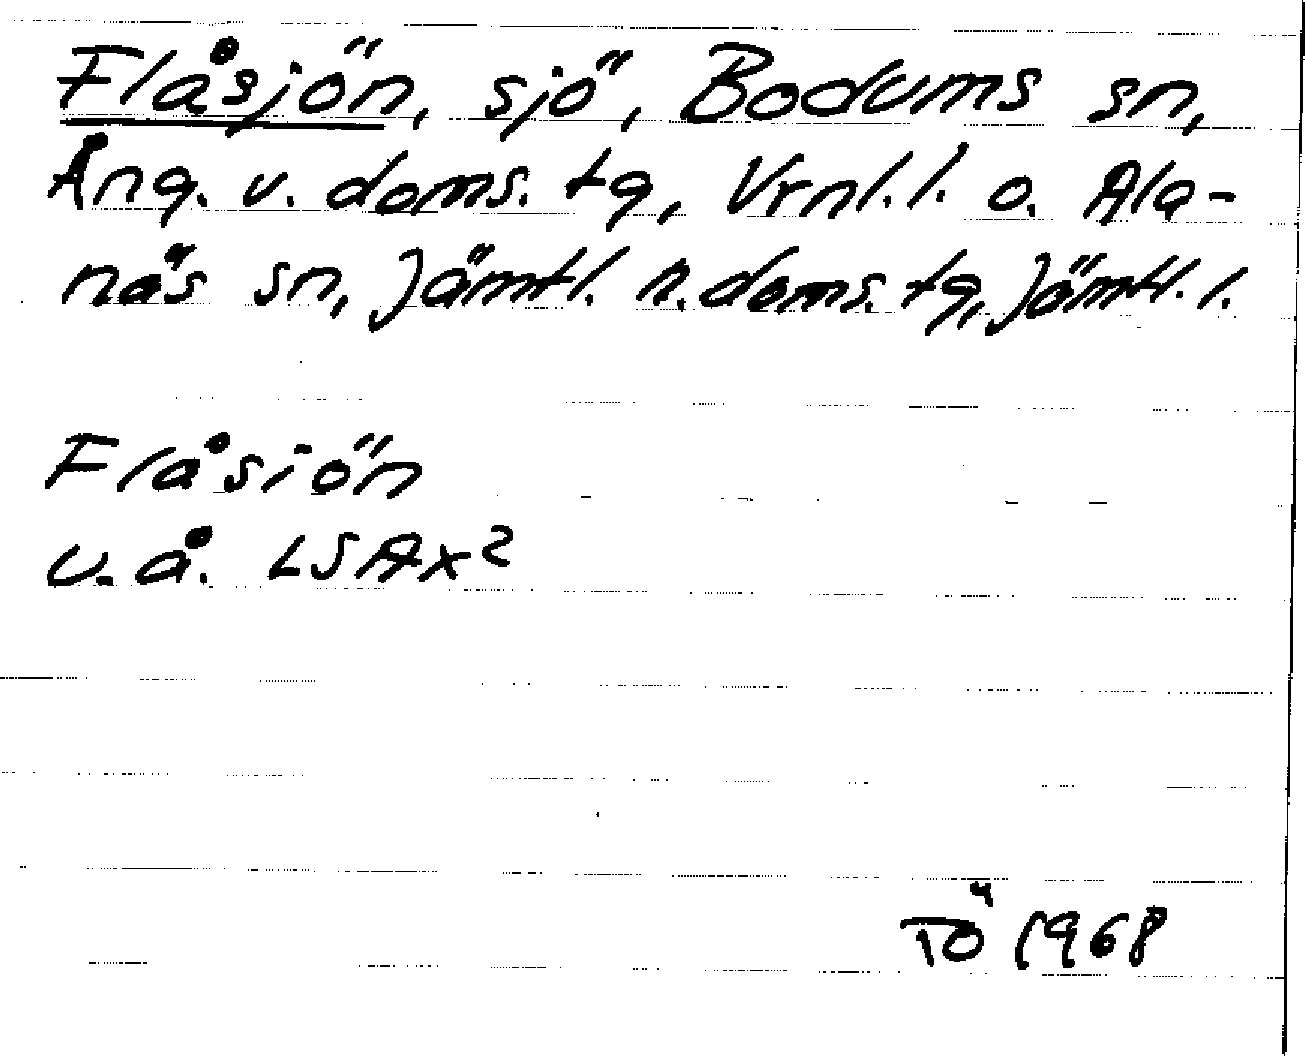 Flåsjön, sjö, Bodums sn,
Ång. v. doms. tg, Vrnl. l. o. Ala-
näs sn, Jämtl. n. doms. tg, Jämtl. l.
Flåsiön
u. å. LSAx²
TÖ 1968